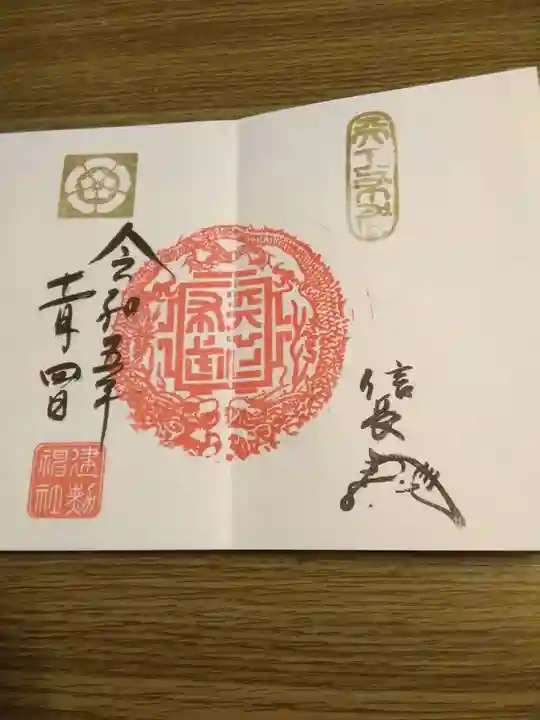 天下布武
信長
令和五年
十一月四日
建勲神社